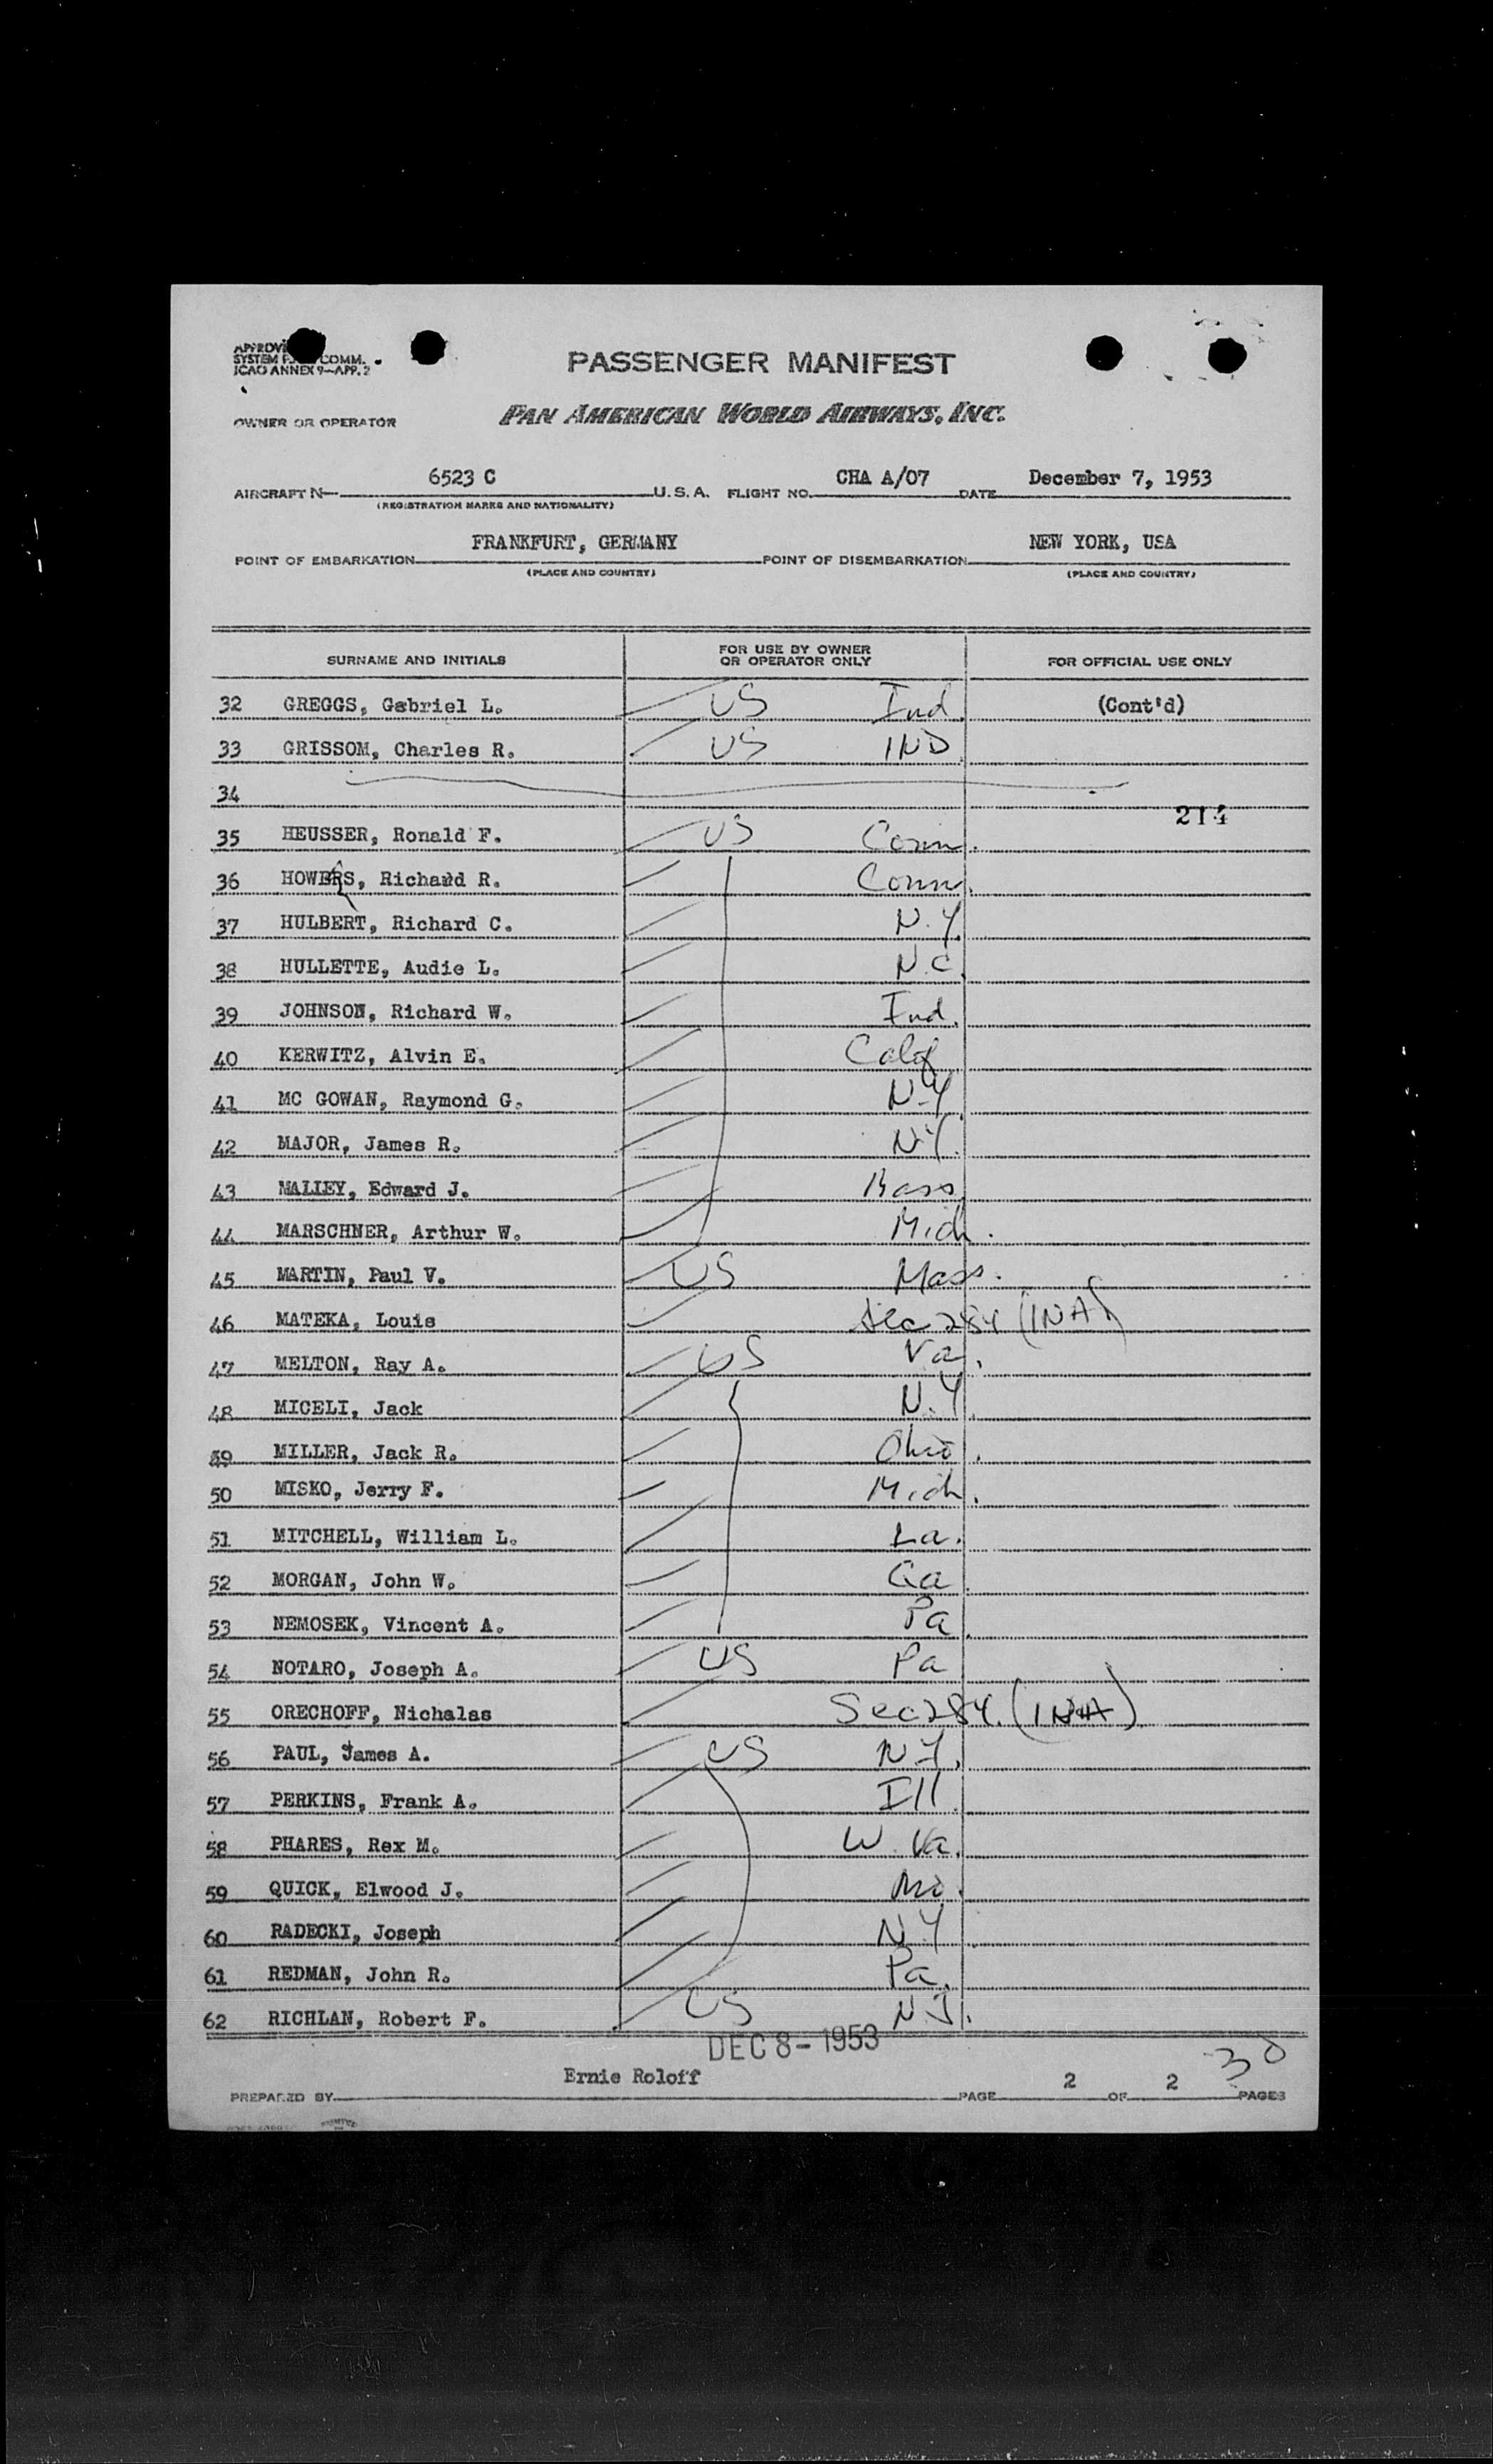 SYSTEM COMM.
ICAO ANNEX 9—APP. 2
PASSENGER MANIFEST
OWNER OR OPERATOR PAN AMERICAN WORLD AIRWAYS, INC.
AIRCRAFT N— 6523 C U.S.A. FLIGHT NO. CHA A/07 DATE December 7, 1953
(REGISTRATION MARKS AND NATIONALITY)
POINT OF EMBARKATION FRANKFURT, GERMANY POINT OF DISEMBARKATION NEW YORK, USA
(PLACE AND COUNTRY) (PLACE AND COUNTRY)
SURNAME AND INITIALS FOR USE BY OWNER OR OPERATOR ONLY FOR OFFICIAL USE ONLY
32 GREGGS, Gabriel L. US Ind. (Cont'd)
33 GRISSOM, Charles R. US IND
34
214
35 HEUSSER, Ronald F. US Conn.
36 HOWERS, Richard R. Conn.
37 HULBERT, Richard C. N.Y.
38 HULLETTE, Audie L. N.C.
39 JOHNSON, Richard W. Ind.
40 KERWITZ, Alvin E. Calif
41 MC GOWAN, Raymond G. N.Y.
42 MAJOR, James R. N.Y.
43 MALLEY, Edward J. Mass
44 MARSCHNER, Arthur W. Mich.
45 MARTIN, Paul V. US Mass.
46 MATEKA, Louis Sec 284 (INA)
47 MELTON, Ray A. US Va.
48 MICELI, Jack N.Y.
59 MILLER, Jack R. Ohio.
50 MISKO, Jerry F. Mich.
51 MITCHELL, William L. La.
52 MORGAN, John W. Ga.
53 NEMOSEK, Vincent A. Pa.
54 NOTARO, Joseph A. US Pa
55 ORECHOFF, Nichalas Sec 284. (INA)
56 PAUL, James A. US N.Y.
57 PERKINS, Frank A. Ill.
58 PHARES, Rex M. W. Va.
59 QUICK, Elwood J. Mo.
60 RADECKI, Joseph N.Y.
61 REDMAN, John R. Pa.
62 RICHLAN, Robert F. US N.J.
DEC 8 - 1953
30
PREPARED BY Ernie Roloff PAGE 2 OF 2 PAGES